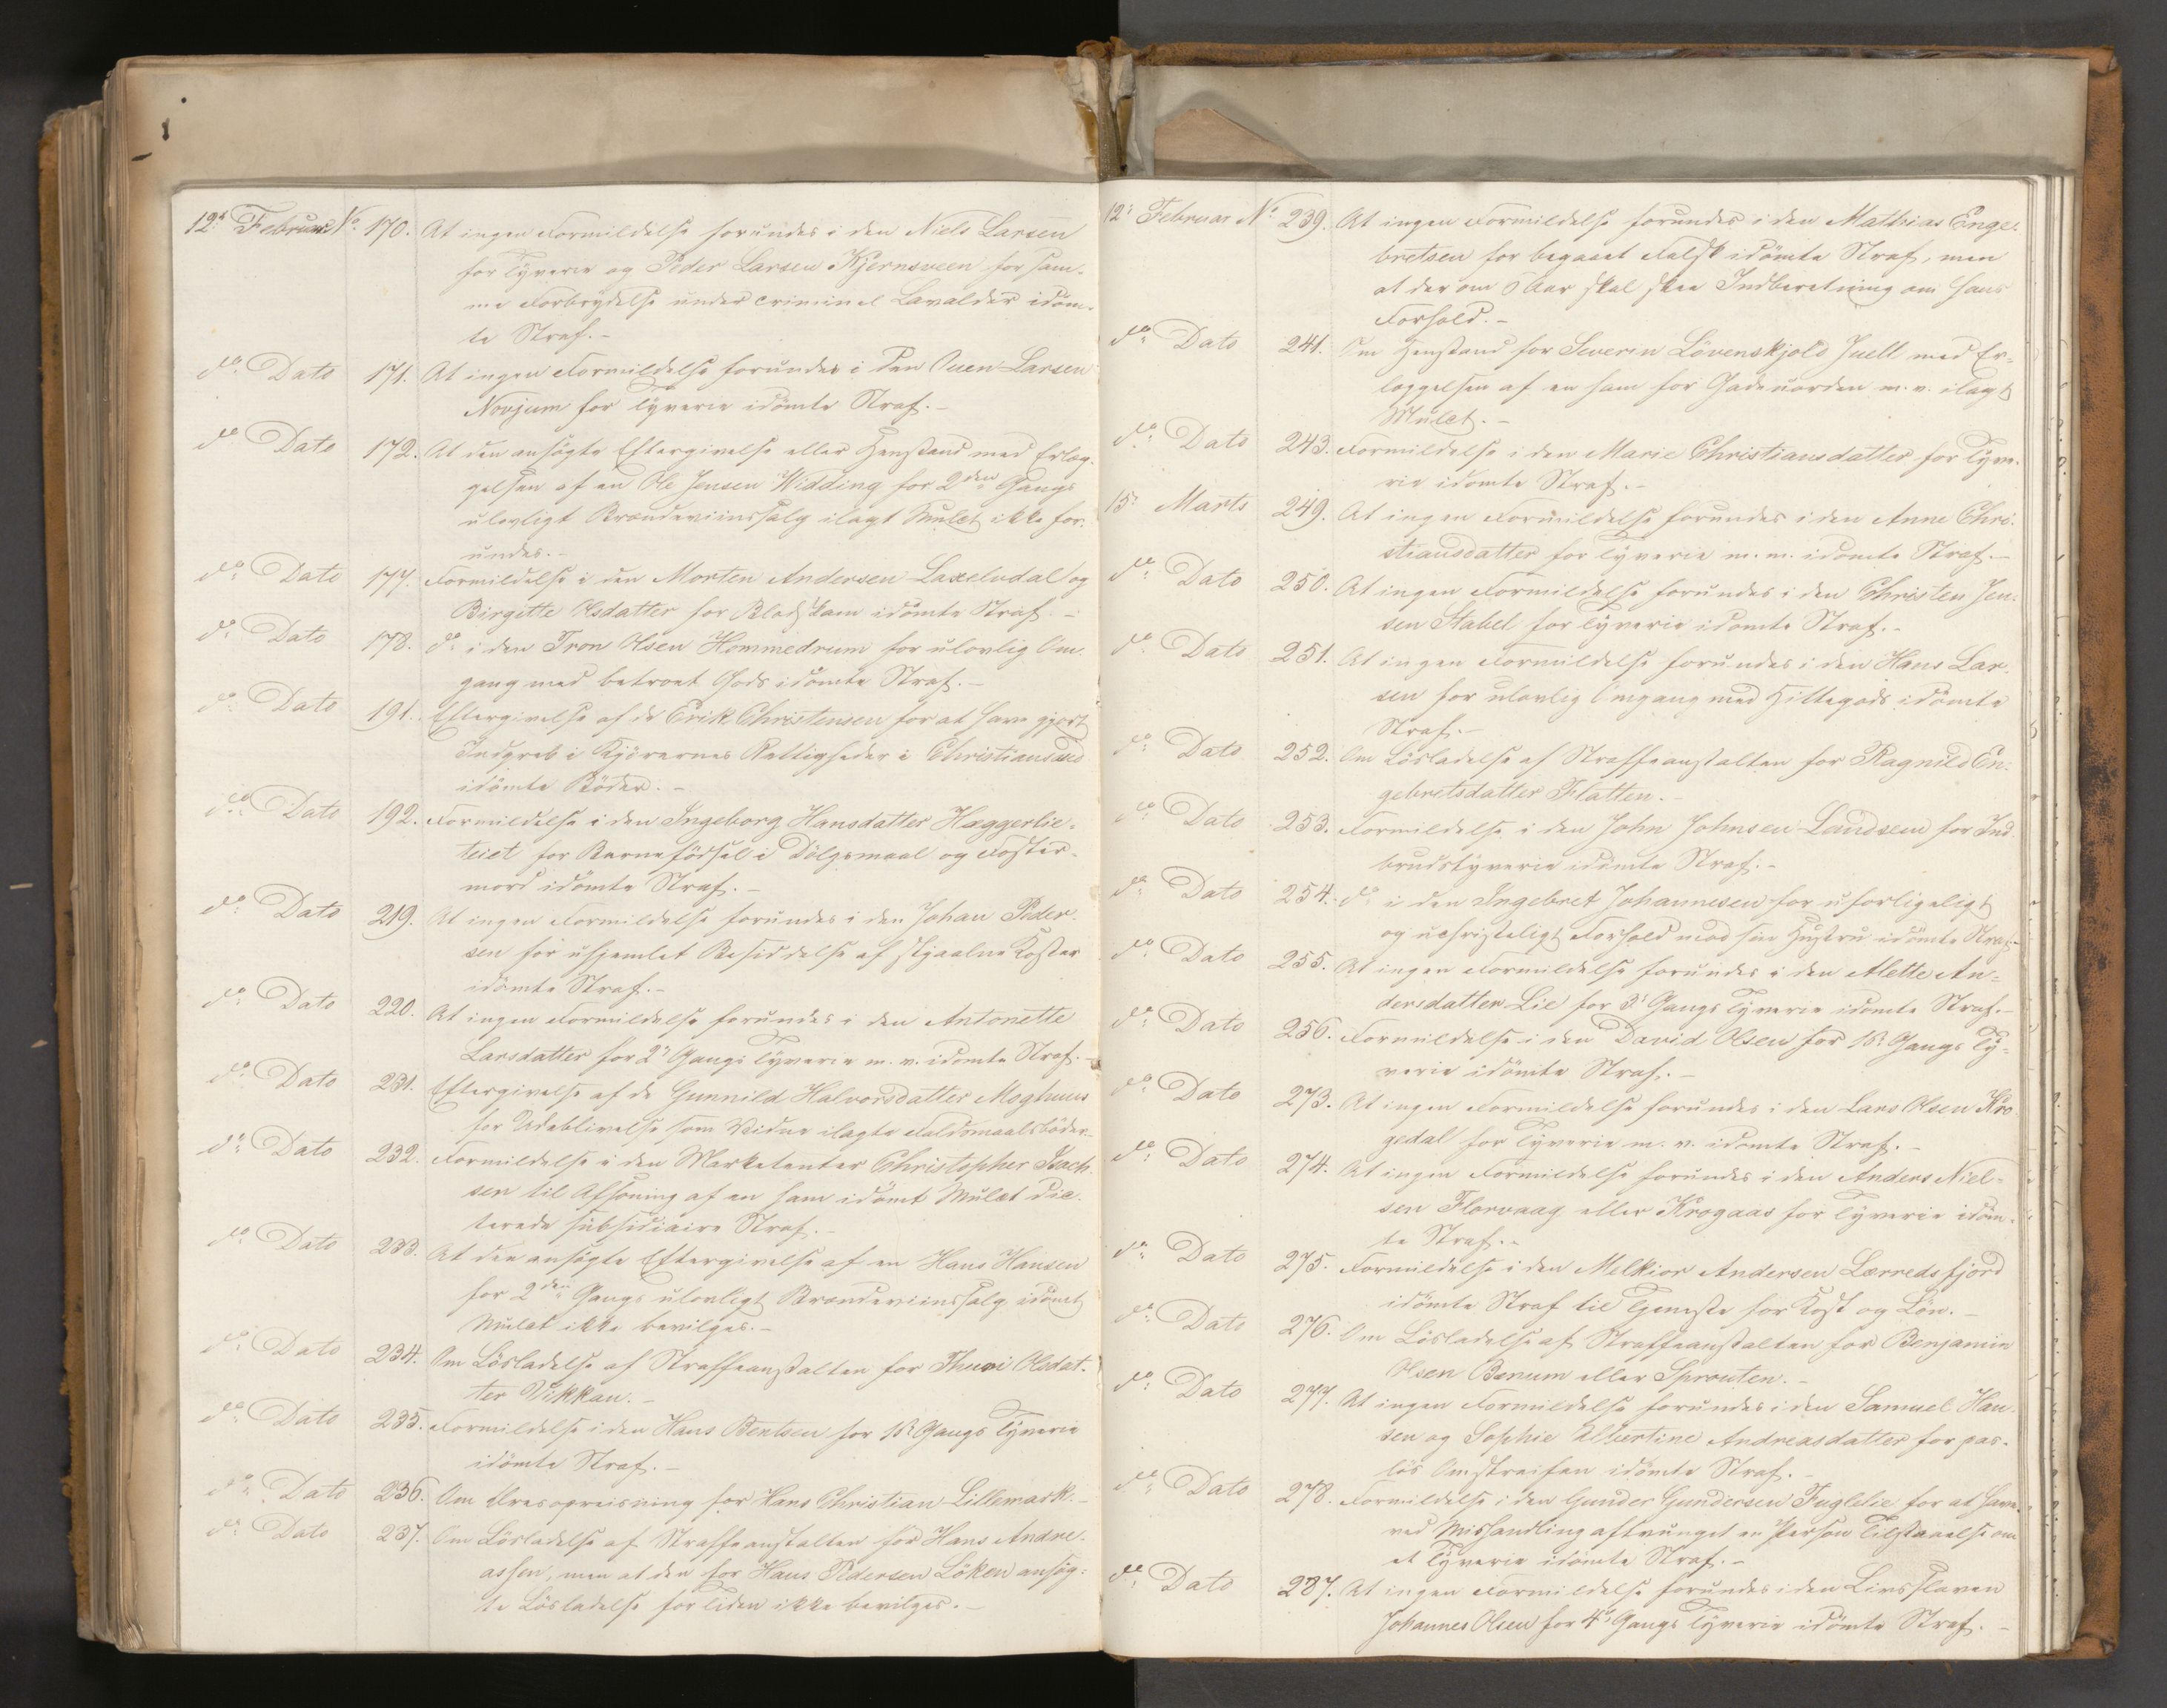 12te Februar No. 170. At ingen Formildelse forundes i den Niels Larsen
for Tyverie og Peder Larsen Kjernsveen for sam-
me Forbrydelse under criminel Lavalder idöm-
te Straf.-
do Dato 171. At ingen Formildelse forundes i den Suen Larsen
Novjum for Tyverie idömte Straf.-
do Dato 172. At den ansögte Eftergivelse eller Henstand med Erlæg-
gelsen af en Ole Jensen Widding for 2den Gangs
ulovligt Brændeviinssalg ilagt Mulct ikke for-
undes.-
do Dato 177. Formildelse i den Morten Andersen Laxelvdal og
Birgitte Olsdatter for Blodskam idömte Straf.-
do Dato 178. do i den Tron Olsen Hommedrum for ulovlig Om-
gang med betroet Gods idömte Straf.-
do Dato 191. Eftergivelse af de Erik Christensen for at have gjort
Indgreb i Kjörernes Rettigheder i Christiansund
idömte Böder.-
do Dato 192. Formildelse i den Ingeborg Hansdatter Hæggerlie-
teiet for Barnefödsel i Dölgsmaal og Foster-
mord idömte Straf.-
do Dato 219. At ingen Formildelse forundes i den Johan Peder-
sen for uhjemlet Besiddelse af stjaalne Koster
idömte Straf.-
do Dato 220. At ingen Formildelse forundes i den Antonette
Larsdatter for 2n Gangs Tyverie m.v. idömte Straf.-
do Dato 231. Eftergivelse af de Gunnild Halvorsdatter Moghuus
for Udeblivelse som Vidne ilagte Faldsmaalsböder.-
do Dato 232. Formildelse i den Marketenter Christopher Isach-
sen til Afsoning af en ham idömt Mulct dic-
terede subsidiaire Straf.-
do Dato 233. At den ansögte Eftergivelse af en Hans Hansen
for 2den Gangs ulovligt Brændeviinssalg idömt
Mulct ikke bevilges.-
do Dato 234. Om Lösladelse af Straffeanstalten for Thuri Olsdat-
ter Vikkan.-
do Dato 235. Formildelse i den Hans Bentsen for 1ste Gangs Tyverie
idömte Straf.-
do Dato 236. Om Æresopreisning for Hans Christian Lillemark.-
do Dato 237. Om Lösladelse af Straffeanstalten for Hans Andre-
assen, men at den for Hans Pedersen Löken ansög-
te Lösladelse for Tiden ikke bevilges.-
12te Februar No. 239. At ingen Formildelse forundes i den Mathias Enge-
bretsen for begaaet Falsk idömte Straf, men
at der om 6 Aar skal skee Indberetning om hans
Forhold.-
do Dato 241. Om Henstand for Severin Lövenskjold Juell med Er-
læggelsen af en ham for Gadeuorden m.v. ilagt
Mulct.-
do Dato 243. Formildelse i den Marie Christiansdatter for Tyve-
rie idömte Straf.-
15de Marts 249. At ingen Formildelse forundes i den Anne Chri-
stiansdatter for Tyverie m.m. idömte Straf.-
do Dato 250. At ingen Formildelse forundes i den Christen Jen-
sen Stabel for Tyverie idömte Straf.-
do Dato 251. At ingen Formildelse forundes i den Hans Lar-
sen for ulovlig Omgang med Hittegods idömte
Straf.-
do Dato 252. Om Lösladelse af Straffeanstalten for Ragnild En-
gebretsdatter Flatten.-
do Dato 253. Formildelse i den John Johnsen Landsem for Ind-
brudstyverie idömte Straf.-
do Dato 254. do i den Ingebret Johannesen for uforligeligt
og uchristeligt Forhold mod sin Hustru idömte Straf.-
do Dato 255. At ingen Formildelse forundes i den Alette An-
dersdatter Lie for 3de Gangs Tyverie idömte Straf.-
do Dato 256. Formildelse i den David Olsen for 1ste Gangs Ty-
verie idömte Straf.-
do Dato 273. At ingen Formildelse forundes i den Lars Olsen Kro-
gedal for Tyverie m.v. idömte Straf.-
do Dato 274. At ingen Formildelse forundes i den Anders Niel-
sen Florvaag eller Krogaas for Tyverie idöm-
te Straf.-
do Dato 275. Formildelse i den Melkior Andersen Lærredsfjord
idömte Straf til Tjeneste for Kost og Lön.-
do Dato 276. Om Lösladelse af Straffeanstalten for Benjamin
Olsen Bærum eller Sprouten.-
do Dato 277. At ingen Formildelse forundes i den Samuel Han-
sen og Sophie Albertine Andreasdatter for pas-
lös Omstreifen idömte Straf.-
do Dato 278. Formildelse i den Gunder Gundersen Fuglelie for at have
ved Mishandling aftvunget en Person Tilstaaelse om
et Tyverie idömte Straf.-
do Dato 287. At ingen Formildelse forundes i den Livsslaven
Johannes Olsen for 4de Gangs Tyverie idömte Straf.-